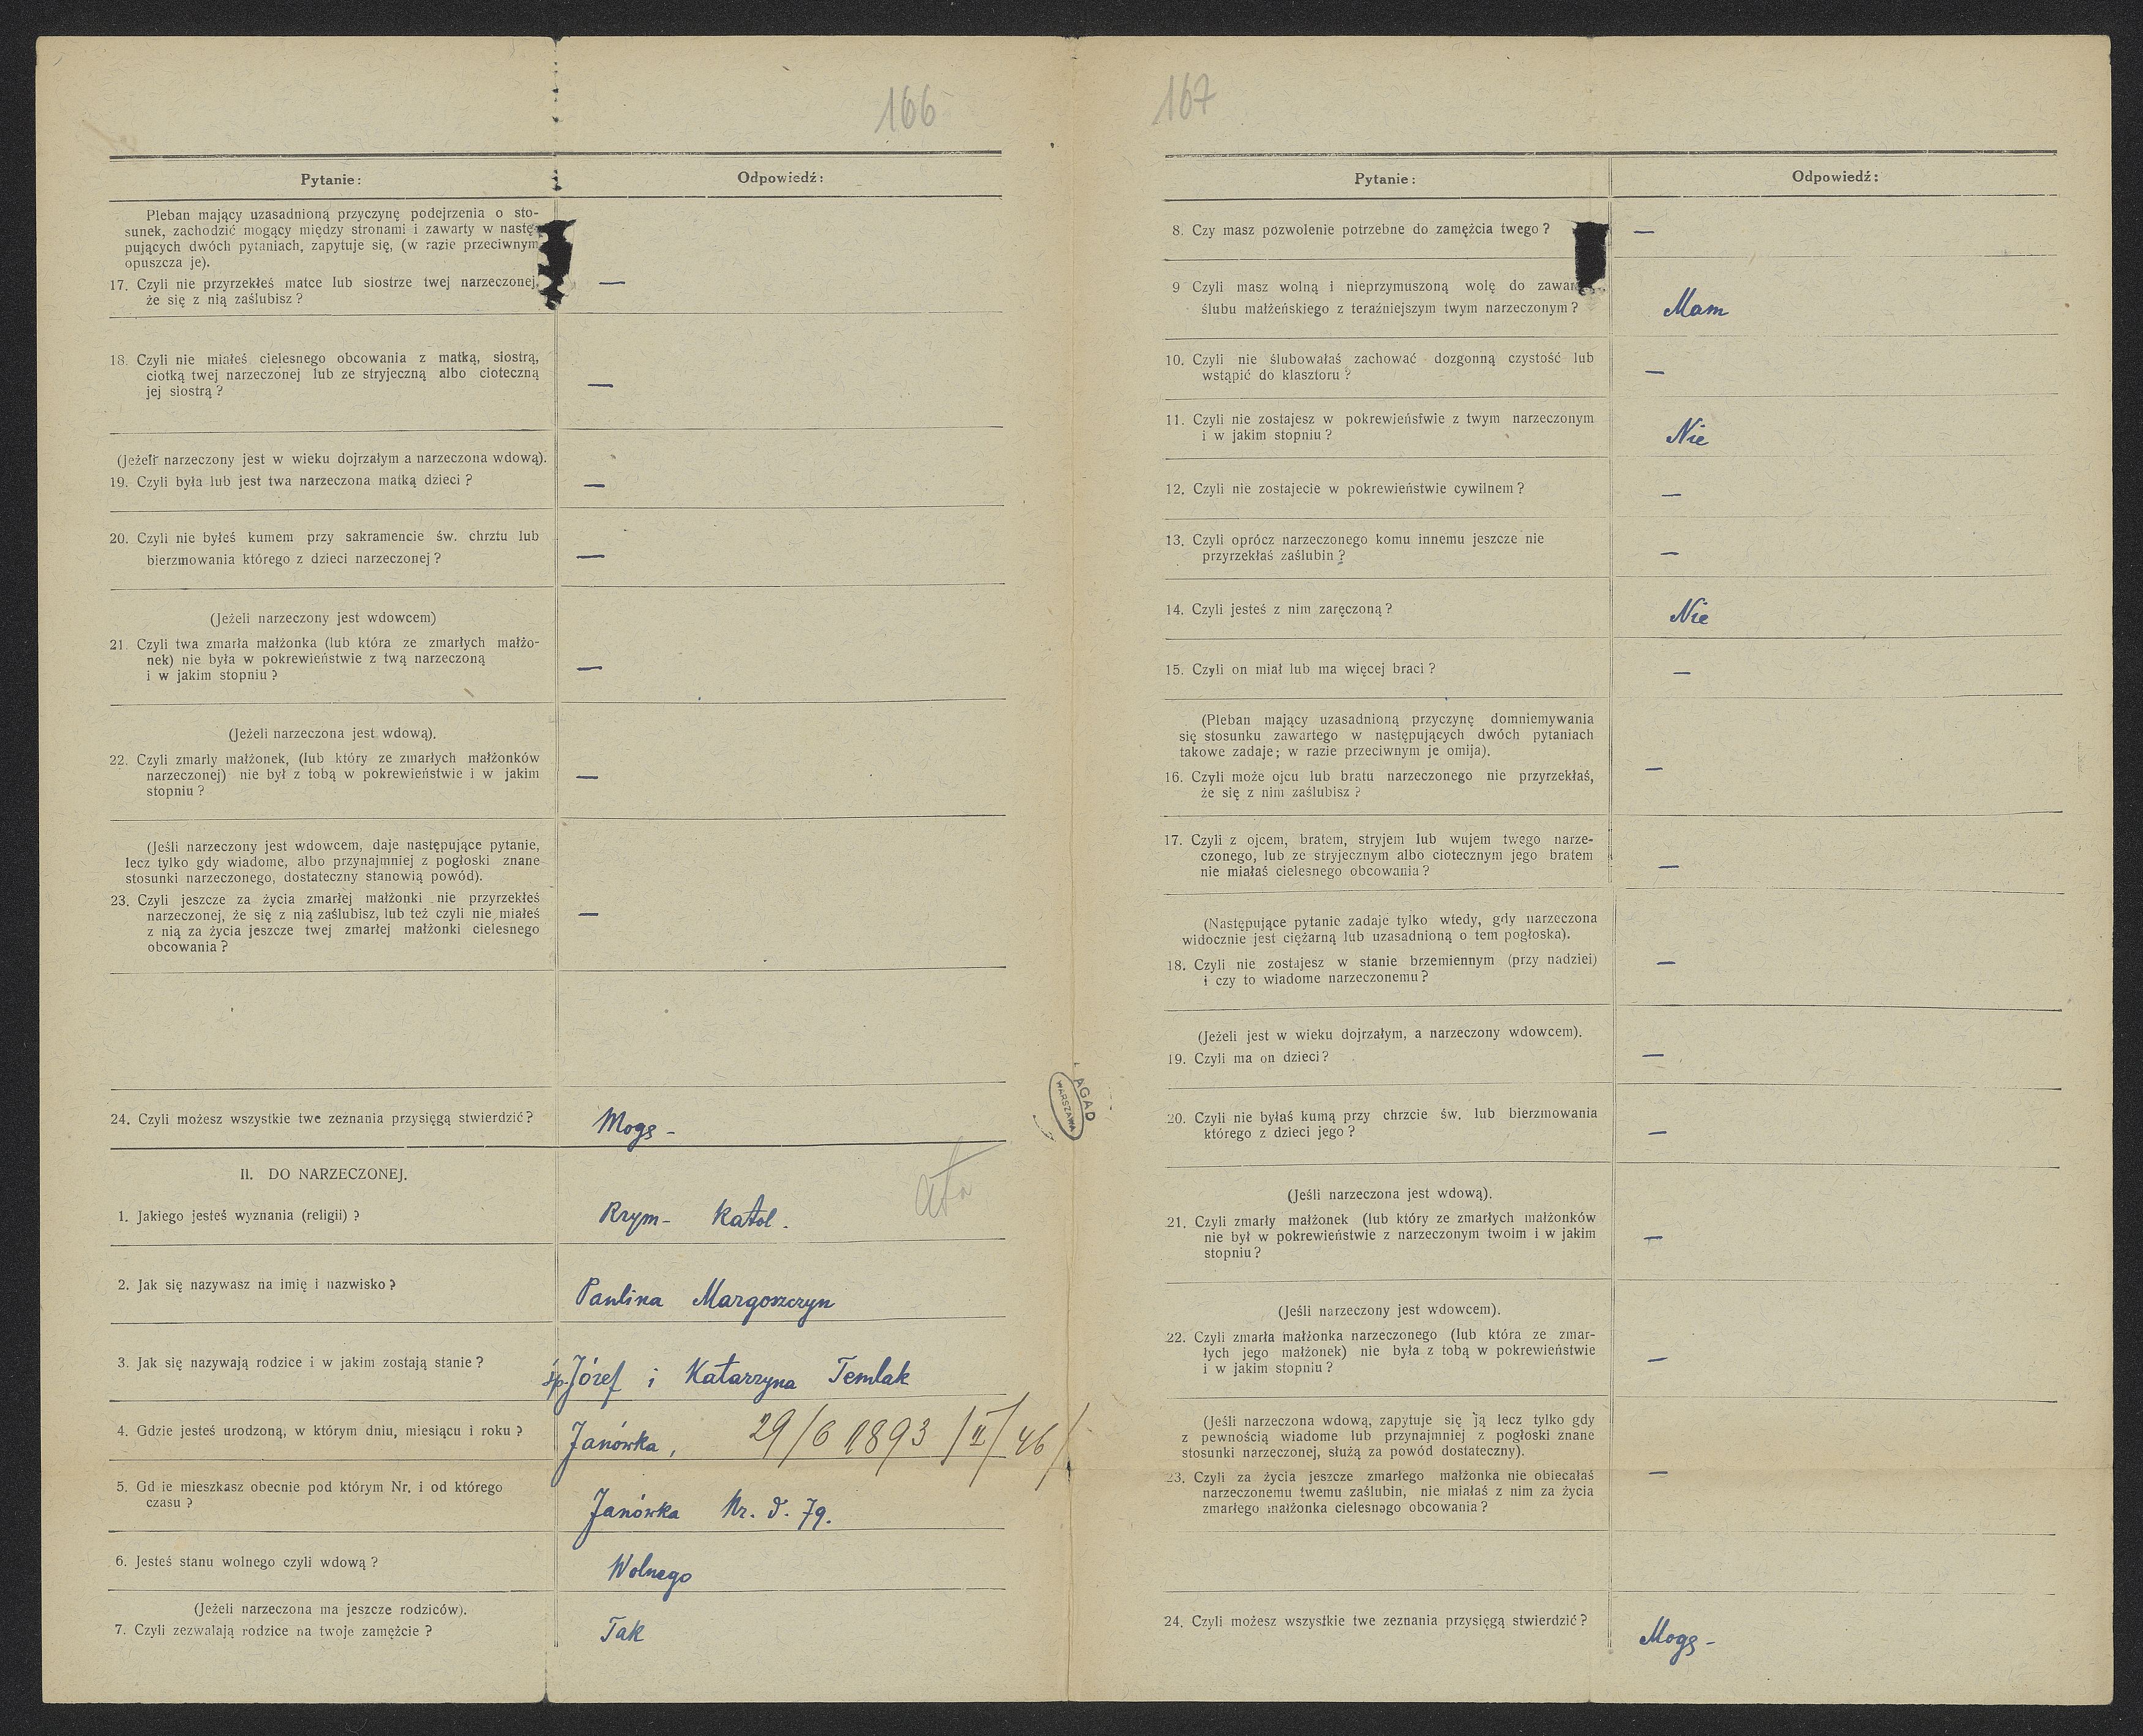 166
Pytanie:
Odpowiedź:
Pleban mający uzasadnioną przyczynę podejrzenia o sto-
sunek, zachodzić mogący między stronami i zawarty w nastę-
pujących dwóch pytaniach, zapytuje się, (w razie przeciwnym
opuszcza je).
17. Czyli nie przyrzekłeś matce lub siostrze twej narzeczonej,
że się z nią zaślubisz?
—
18. Czyli nie miałeś cielesnego obcowania z matką, siostrą,
ciotką twej narzeczonej lub ze stryjeczną albo cioteczną
jej siostrą?
—
(Jeżeli narzeczony jest w wieku dojrzałym a narzeczona wdową).
19. Czyli była lub jest twa narzeczona matką dzieci?
—
20. Czyli nie byłeś kumem przy sakramencie św. chrztu lub
bierzmowania którego z dzieci narzeczonej?
—
(Jeżeli narzeczony jest wdowcem)
21. Czyli twa zmarła małżonka (lub która ze zmarłych małżo-
nek) nie była w pokrewieństwie z twą narzeczoną
i w jakim stopniu?
—
(Jeżeli narzeczona jest wdową).
22. Czyli zmarly małżonek, (lub który ze zmarłych małżonków
narzeczonej) nie był z tobą w pokrewieństwie i w jakim
stopniu?
—
(Jeśli narzeczony jest wdowcem, daje następujące pytanie,
lecz tylko gdy wiadome, albo przynajmniej z pogłoski znane
stosunki narzeczonego, dostateczny stanowią powód).
23. Czyli jeszcze za życia zmarłej małżonki nie przyrzekłeś
narzeczonej, że się z nią zaślubisz, lub też czyli nie miałeś
z nią za życia jeszcze twej zmarłej małżonki cielesnego
obcowania?
—
24. Czyli możesz wszystkie twe zeznania przysięgą stwierdzić?
Mogę -
II. DO NARZECZONEJ.
1. Jakiego jesteś wyznania (religii)?
Rzym- katol.
2. Jak się nazywasz na imię i nazwisko?
Paulina Margoszczyn
3. Jak się nazywają rodzice i w jakim zostają stanie?
śp. Józef i Katarzyna Temlak
4. Gdzie jesteś urodzoną, w którym dniu, miesiącu i roku?
Janówka, 29/6 1893 /II/46/
5. Gd ie mieszkasz obecnie pod którym Nr. i od którego
czasu?
Janówka Nr. d. 79.
6. Jesteś stanu wolnego czyli wdową?
Wolnego
(Jeżeli narzeczona ma jeszcze rodziców).
7. Czyli zezwalają rodzice na twoje zamężcie?
Tak
AGAD
WARSZAWA
167
Pytanie:
Odpowiedź:
8. Czy masz pozwolenie potrzebne do zamężcia twego?
—
9 Czyli masz wolną i nieprzymuszoną wolę do zawar
ślubu małżeńskiego z teraźniejszym twym narzeczonym?
Mam
10. Czyli nie ślubowałaś zachować dozgonną czystość lub
wstąpić do klasztoru?
—
11. Czyli nie zostajesz w pokrewieństwie z twym narzeczonym
i w jakim stopniu?
Nie
12. Czyli nie zostajecie w pokrewieństwie cywilnem?
—
13. Czyli oprócz narzeczonego komu innemu jeszcze nie
przyrzekłaś zaślubin?
—
14. Czyli jesteś z nim zaręczoną?
Nie
15. Czyli on miał lub ma więcej braci?
—
(Pleban mający uzasadnioną przyczynę domniemywania
się stosunku zawartego w następujących dwóch pytaniach
takowe zadaje; w razie przeciwnym je omija).
16. Czyli może ojcu lub bratu narzeczonego nie przyrzekłaś,
że się z nim zaślubisz?
—
17. Czyli z ojcem, bratem, stryjem lub wujem twego narze-
czonego, lub ze stryjecznym albo ciotecznym jego bratem
nie miałaś cielesnego obcowania?
—
(Następujące pytanie zadaje tylko wtedy, gdy narzeczona
widocznie jest ciężarną lub uzasadnioną o tem pogłoska).
18. Czyli nie zostajesz w stanie brzemiennym (przy nadziei)
i czy to wiadome narzeczonemu?
—
(Jeżeli jest w wieku dojrzałym, a narzeczony wdowcem).
19. Czyli ma on dzieci?
—
20. Czyli nie byłaś kumą przy chrzcie św. lub bierzmowania
którego z dzieci jego?
—
(Jeśli narzeczona jest wdową).
21. Czyli zmarły małżonek (lub który ze zmarłych małżonków
nie był w pokrewieństwie z narzeczonym twoim i w jakim
stopniu?
—
(Jeśli narzeczony jest wdowcem).
22. Czyli zmarła małżonka narzeczonego (lub która ze zmar-
łych jego małżonek) nie była z tobą w pokrewieństwie
i w jakim stopniu?
—
(Jeśli narzeczona wdową, zapytuje się ją lecz tylko gdy
z pewnością wiadome lub przynajmniej z pogłoski znane
stosunki narzeczonej, służą za powód dostateczny).
23. Czyli za życia jeszcze zmarłego małżonka nie obiecałaś
narzeczonemu twemu zaślubin, nie miałaś z nim za życia
zmarłego małżonka cielesnego obcowania?
—
24. Czyli możesz wszystkie twe zeznania przysięgą stwierdzić?
Mogę -